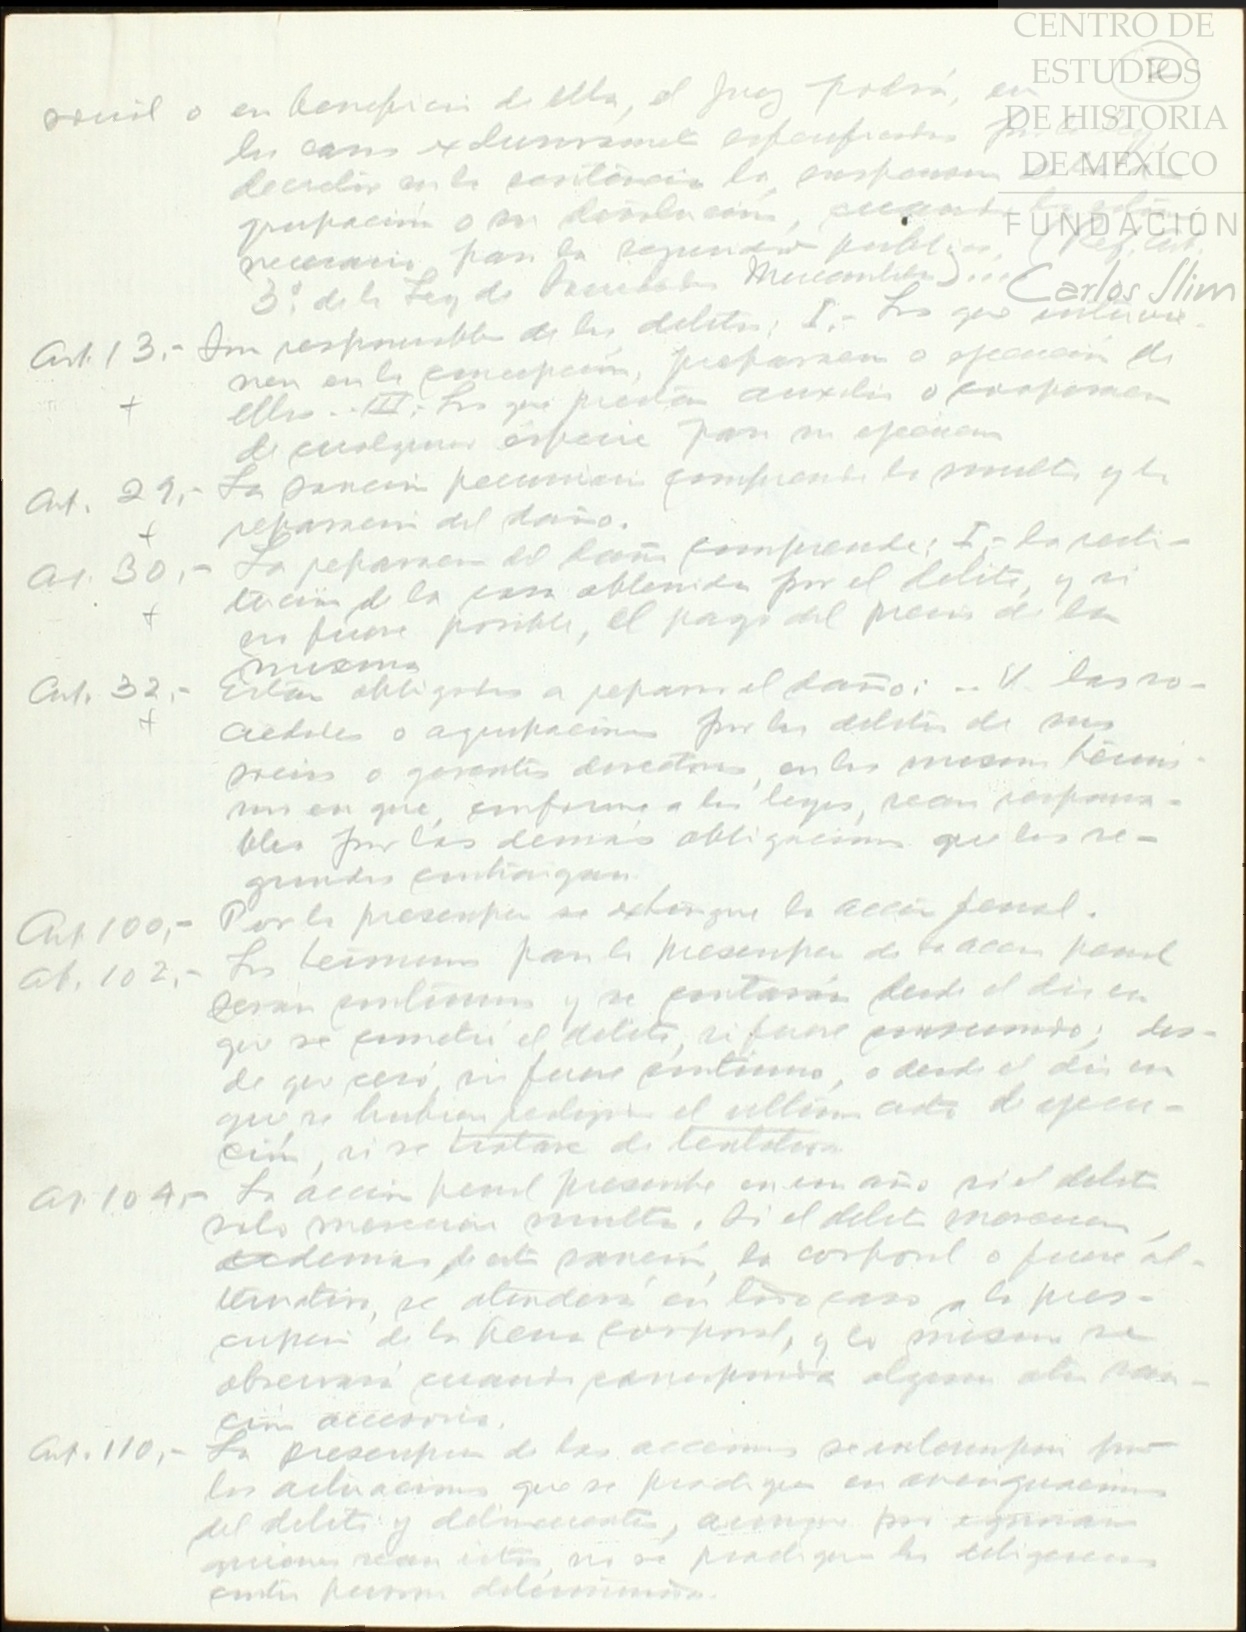 CENTRO DE
ESTUDIOS
DE HISTORIA
DE MÉXICO
FUNDACIÓN
Carlos Slim
social o en beneficio de ella, el Juez podrá, en
los casos exclusivamente especificados por la ley,
decretar en la sentencia la suspensión de la a-
grupación o su disolución, cuando lo estime
necesario para la seguridad pública. (Ref. art.
3º de la Ley de Sociedades Mercantiles)...
Art. 13.- Son responsables de los delitos: I.- Los que intervie-
nen en la concepción, preparación o ejecución de
ellos... III.- Los que prestan auxilio o cooperación
+
de cualquier especie para su ejecución
Art. 29.- La sanción pecuniaria comprende la multa y la
reparación del daño.
+
Art. 30.- La reparación del daño comprende: I.- la resti-
tución de la cosa obtenida por el delito, y si
+
no fuere posible, el pago del precio de la
misma
Art. 32.- Están obligados a reparar el daño: .. V. las so-
+
ciedades o agrupaciones por los delitos de sus
socios o gerentes directores, en los mismos térmi-
nos en que, conforme a las leyes, sean responsa-
bles por las demás obligaciones que los se-
gundos contraigan
Art 100.- Por la prescripción se extingue la acción penal.
Art. 102.- Los términos para la prescripción de la acción penal
serán continuos y se contarán desde el día en
que se cometió el delito, si fuere consumado; des-
de que cesó, si fuere continuo, o desde el día en
que se hubiere realizado el último acto de ejecu-
ción, si se tratare de tentativa
Art 104.- La acción penal prescribe en un año si el delito
sólo mereciere multa. Si el delito mereciere,
además de esta sanción, la corporal o fuere al-
ternativa, se atenderá en todo caso a la pres-
cripción de la pena corporal, y lo mismo se
observará cuando corresponda alguna otra san-
ción accesoria.
Art. 110.- La prescripción de las acciones se interrumpirá por
las actuaciones que se practiquen en averiguación
del delito y delincuentes, aunque por ignorarse
quienes sean éstos, no se practiquen las diligencias
contra persona determinada.